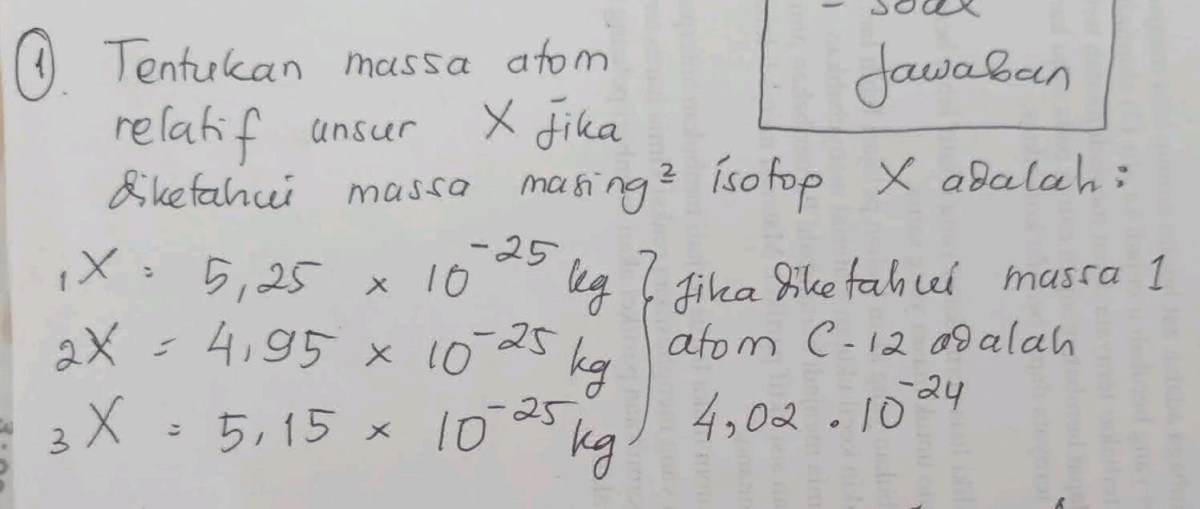 - soal
Jawaban
① Tentukan massa atom
relatif unsur X jika
diketahui massa masing² isotop X adalah :
₁X = 5,25 × 10⁻²⁵ kg } Jika diketahui massa 1
₂X = 4,95 × 10⁻²⁵ kg } atom C-12 adalah
₃X = 5,15 × 10⁻²⁵ kg } 4,02 . 10⁻²⁴